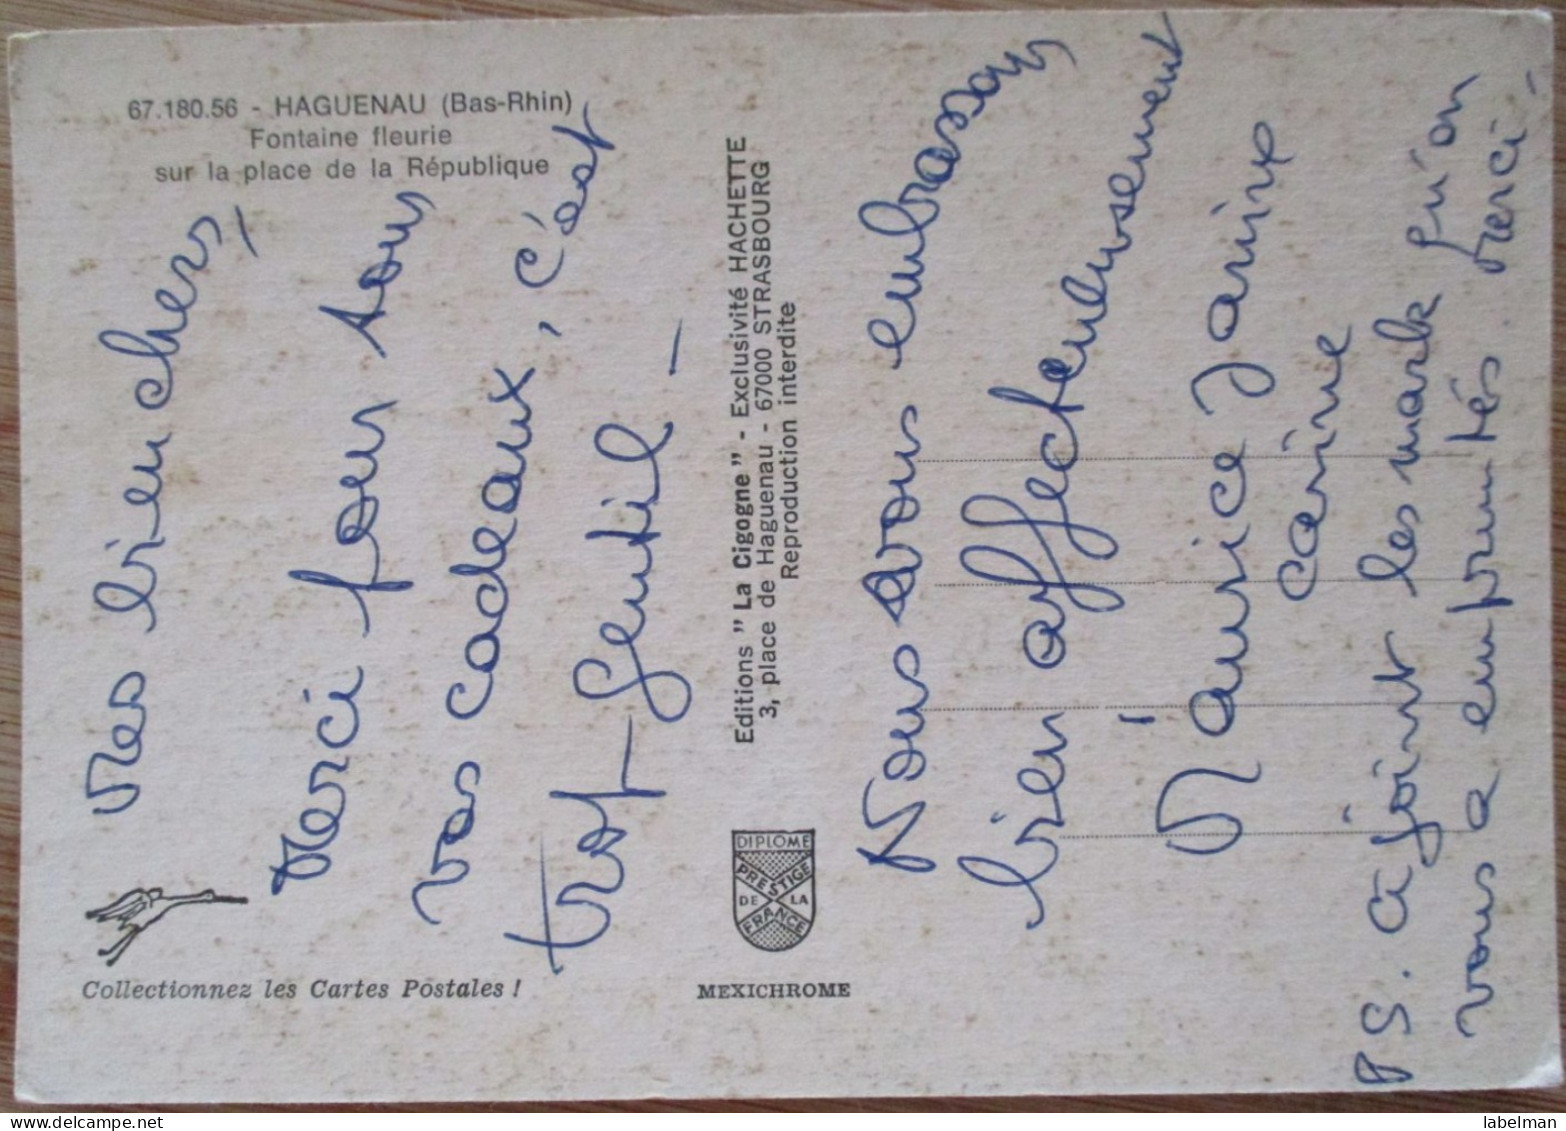 67.180.56 - HAGUENAU (Bas-Rhin)
Fontaine fleurie
sur la place de la République
Mes bien chers,
Merci pour tous
vos cadeaux, c'est
trop gentil -
Collectionnez les Cartes Postales !
Editions " La Cigogne " - Exclusivité HACHETTE
3, place de Haguenau - 67000 STRASBOURG
Reproduction interdite
DIPLOME
PRESTIGE
DE LA
FRANCE
MEXICHROME
Nous vous embrassons
bien affectueusement
Maurice Janine
Carine
PS. ci joint les mark qu'on
vous a empruntés merci -
labelman